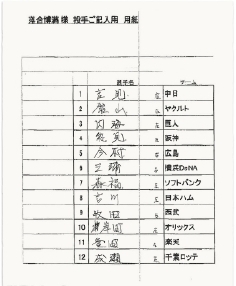 落合博満様 投手ご記入用 用紙
選手名 チーム
1 吉見 中日
2 館山 ヤクルト
3 内海 巨人
4 能見 阪神
5 今村 広島
6 三浦 横浜DeNA
7 森福 ソフトバンク
8 吉川 日本ハム
9 牧田 西武
10 岸田 オリックス
11 釜田 楽天
12 成瀬 千葉ロッテ